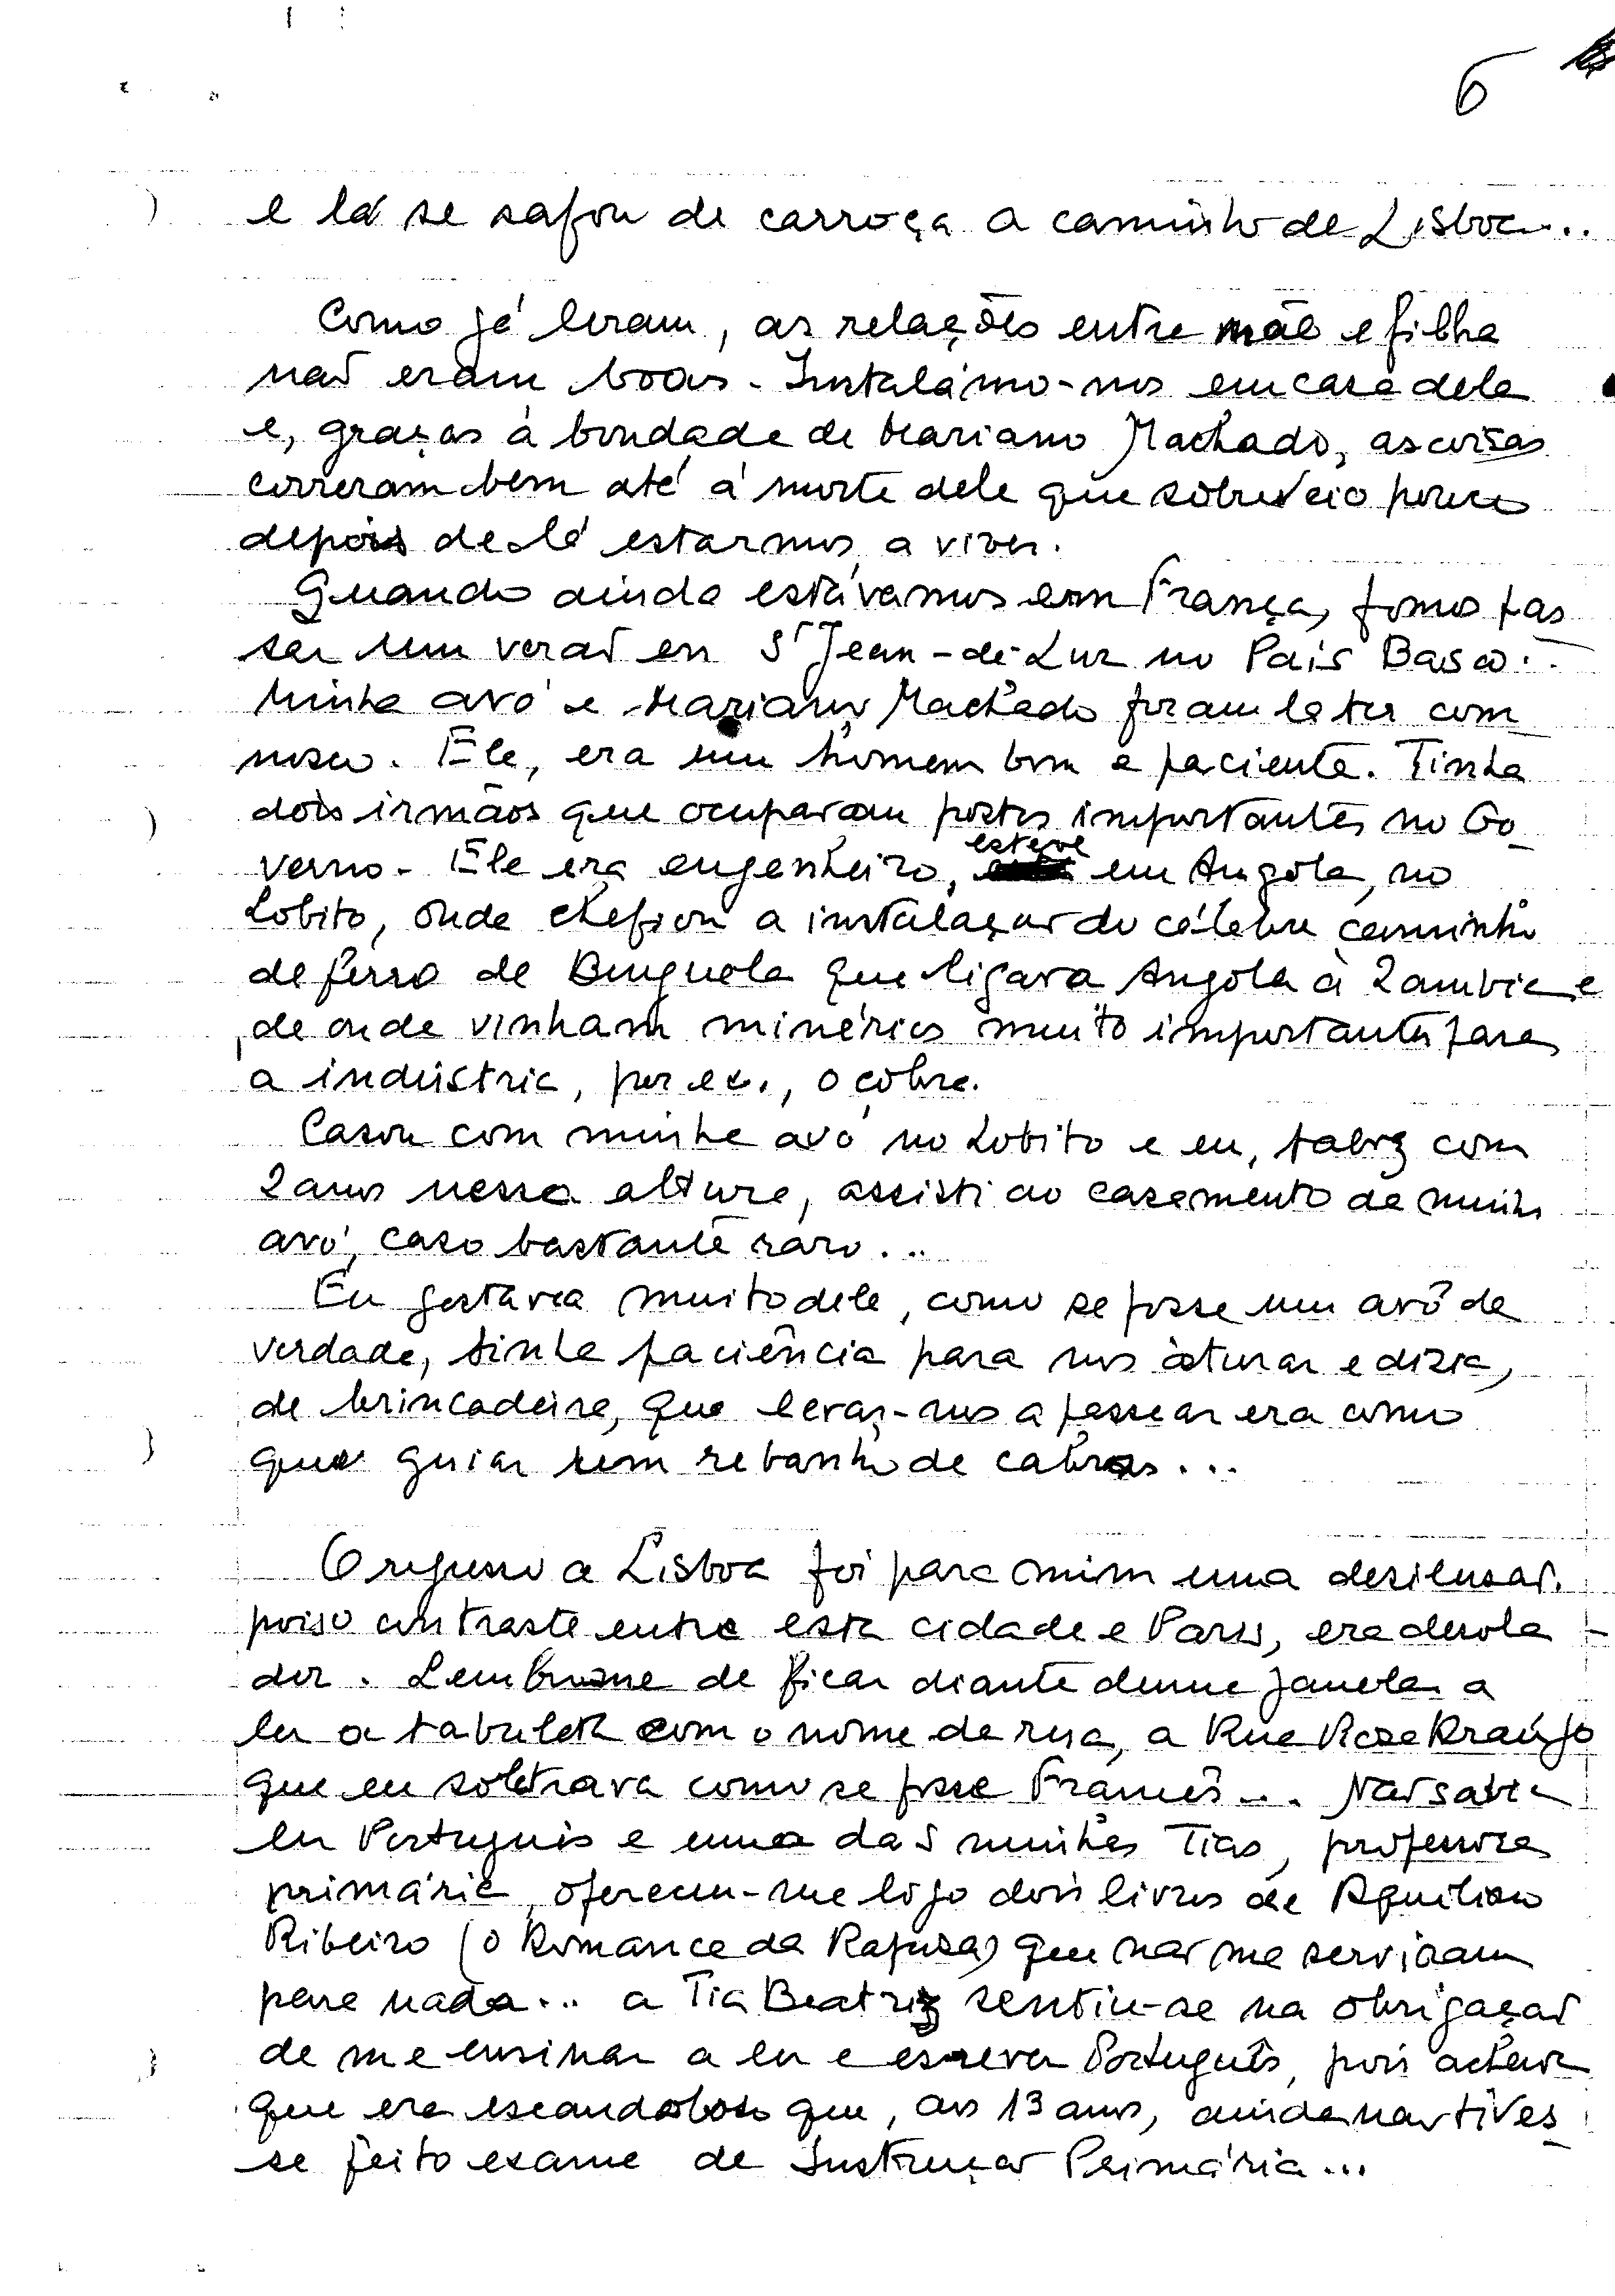 6
e lá se safou de carroça a caminho de Lisboa...
Como já leram, as relações entre mãe e filha
não eram boas. Instalámo-nos em casa dela
e, graças à bondade de Mariano Machado, as coisas
correram bem até á morte dele que sobreveio pouco
depois de lá estarmos a viver.
Quando ainda estávamos em França, fomos pas
sar um verão en St Jean-de-Luz no País Basco..
Minha avó e Mariano Machado foram lá ter com_
nosco. Ele, era um homem bom e paciente. Tinha
dois irmãos que ocuparam postos importantes no Go_
verno. Ele era engenheiro, esteve em Angola, no
Lobito, onde chefiou a instalação do célebre caminho
de ferro de Benguela que ligava Angola à Zambia e
de onde vinham minérios muito importantes para
a indústria, por ex., o cobre.
Casou com minha avó no Lobito e eu, talvez com
2 anos nessa altura, assisti ao casamento de minha
avó, caso bastante raro...
Eu gostava muito dele, como se fosse um avô de
verdade, tinha paciência para nos aturar e dizia,
de brincadeira, que levar-nos a passear era como
que guiar um rebanho de cabras...
O regresso a Lisboa foi para mim uma desilusão.
pois o contraste entre esta cidade e Paris, era desola-
dor. Lembro-me de ficar diante duma janela a
ler a tabuleta com o nome da rua, a Rua Rosa Araújo
que eu soletrava como se fosse Francês... Não sabia
ler Português e uma das minhas Tias, professora
primária, ofereceu-me logo dois livros de Aquilino
Ribeiro (o Romance da Raposa) que não me serviram
para nada... a Tia Beatriz sentiu-se na obrigação
de me ensinar a ler e escrever Português, pois achava
que era escandaloso que, aos 13 anos, ainda não tives_
se feito exame de Instrução Primária...